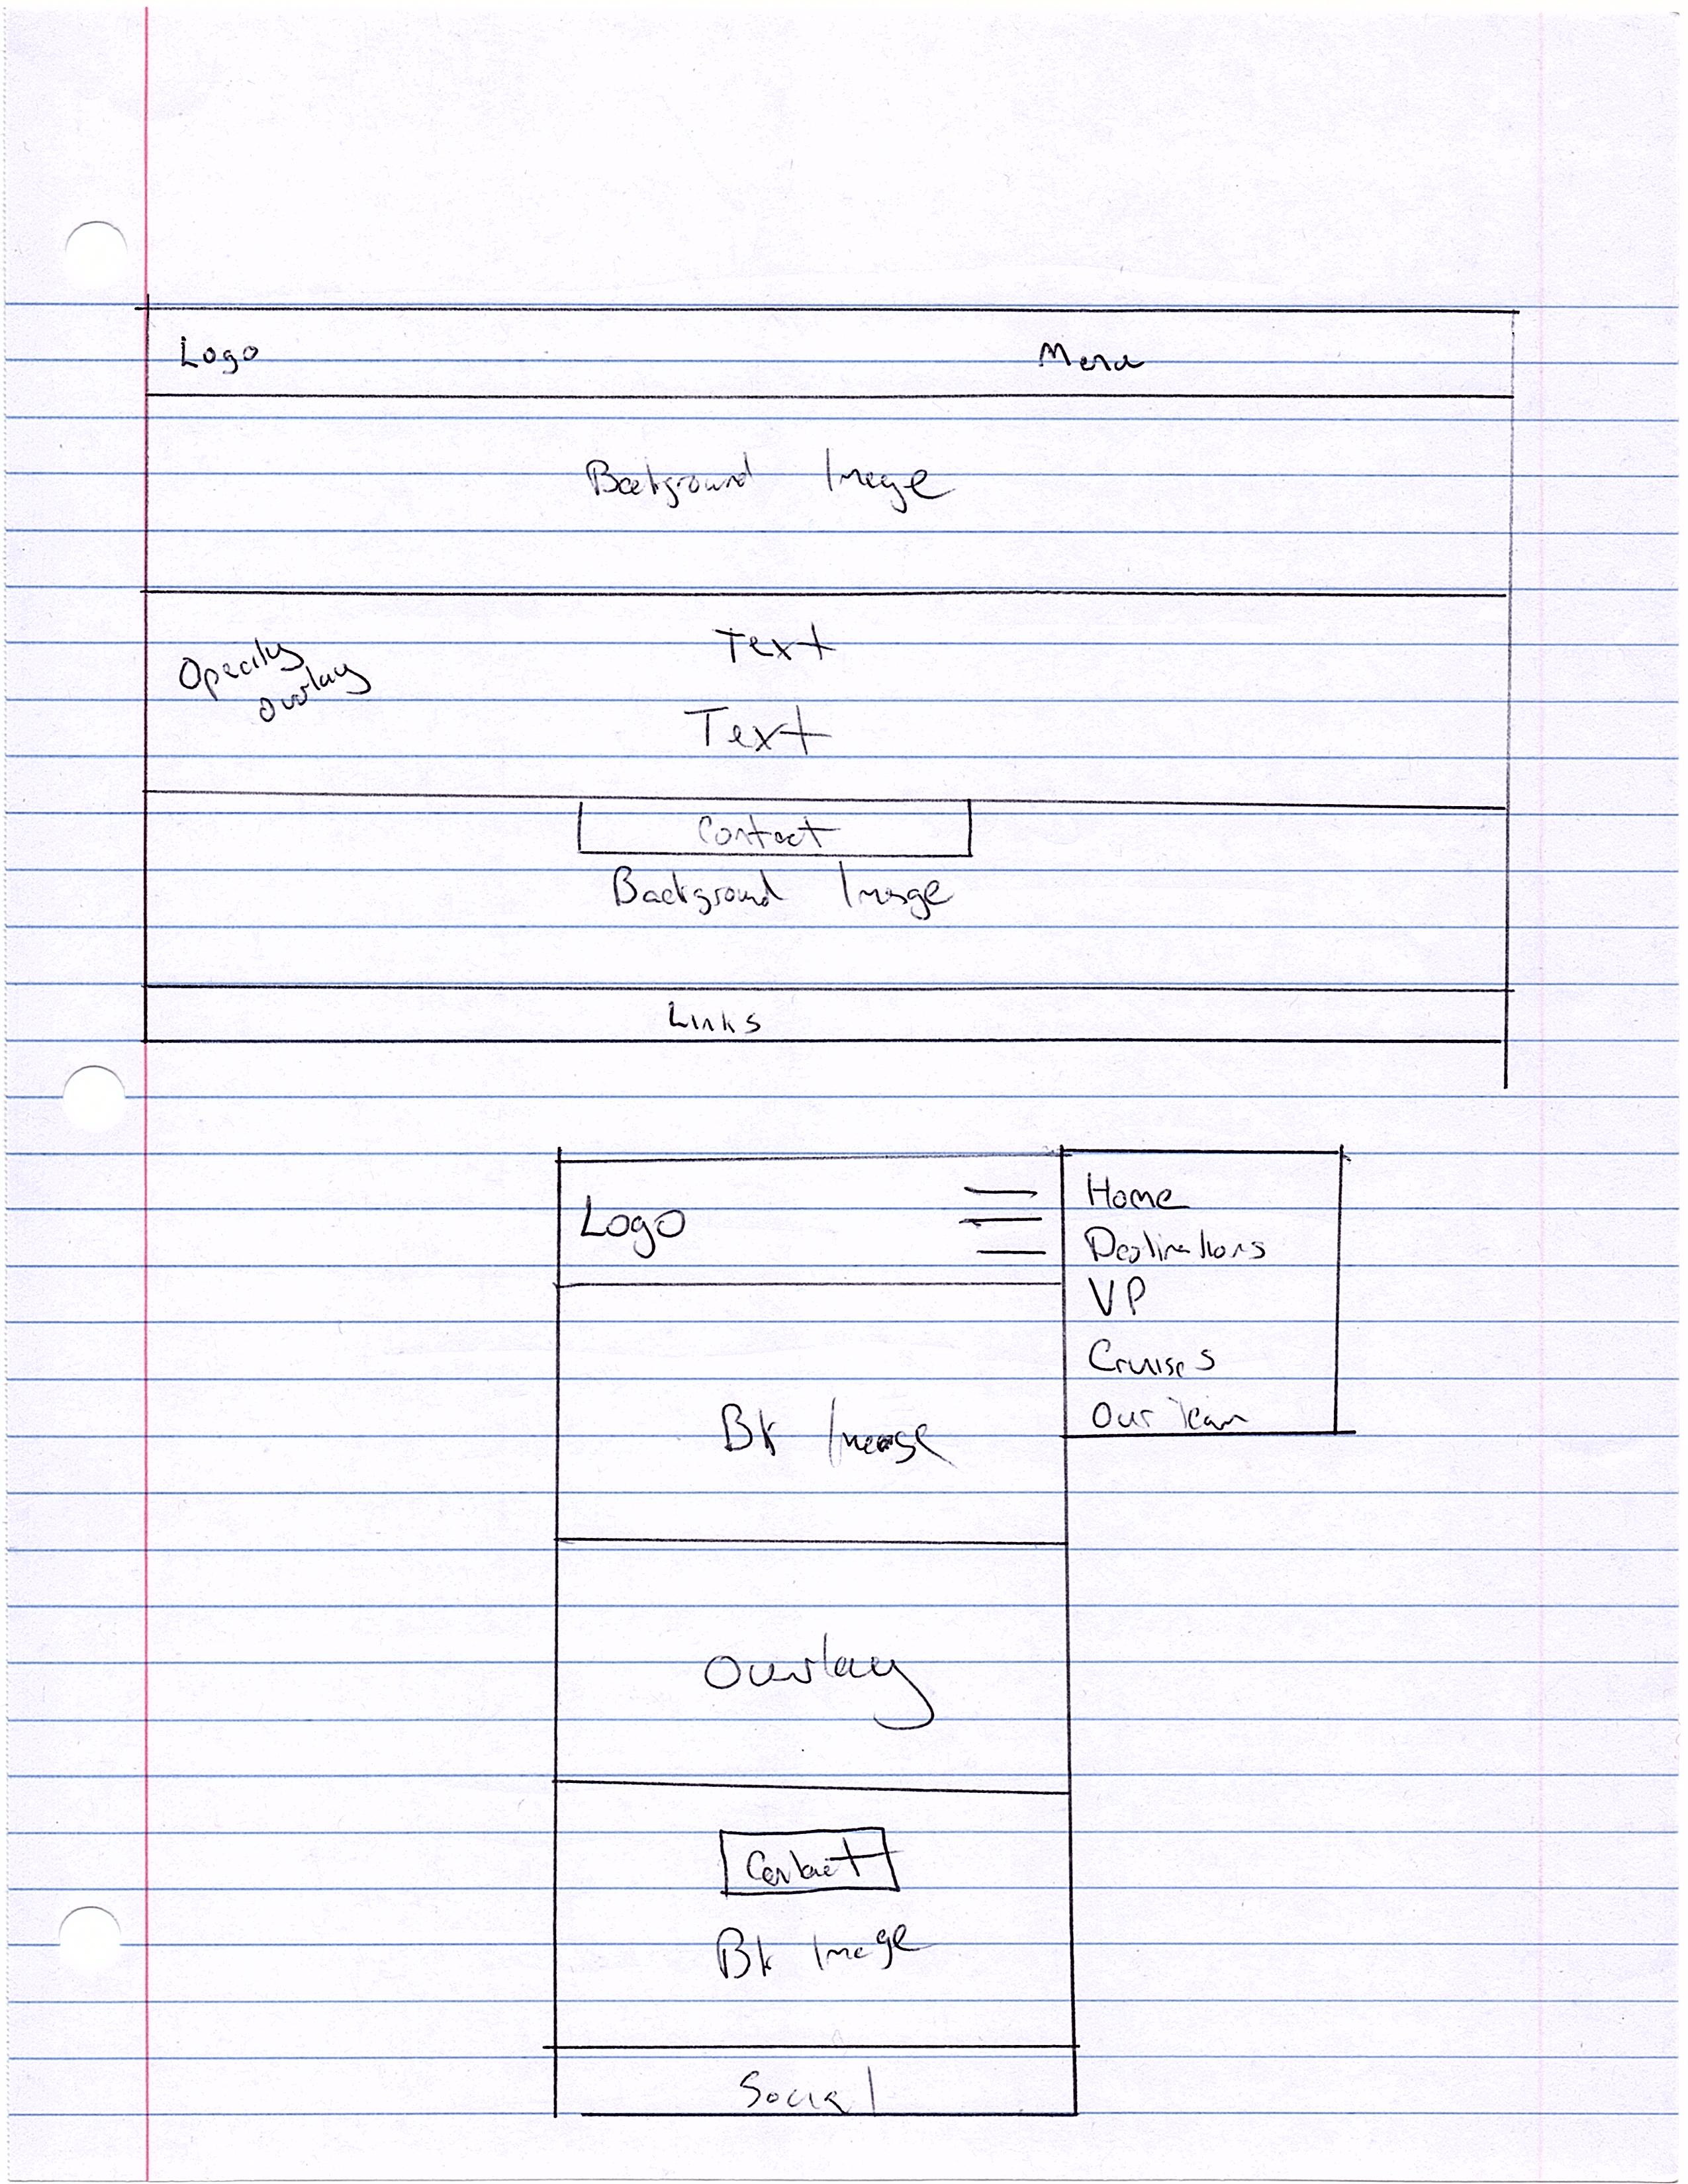 Logo Menu
Background Image
Text
Opacity
overlay
Text
Contact
Background Image
Links
Logo
Home
Destinations
VP
Cruises
Our Team
Bk Image
Overlay
Contact
Bk Image
Social